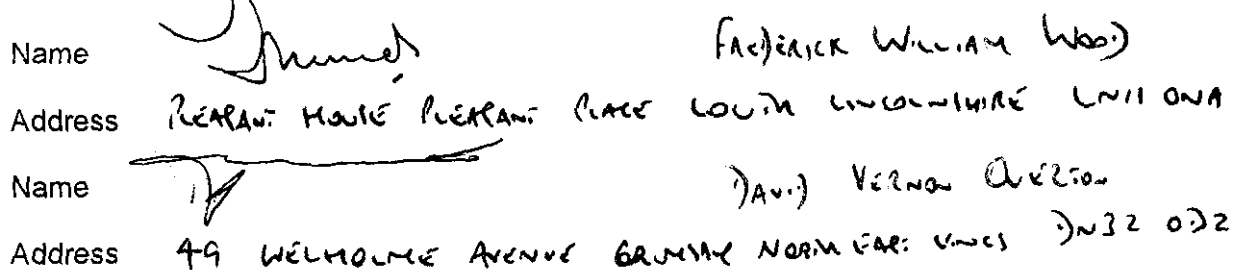 Name FREDERICK WILLIAM WOOD
Address PLEASANT HOUSE PLEASANT PLACE LOUTH LINCOLNSHIRE LN11 0NA
Name DAVID VERNON OVERTON
Address 49 WELHOLME AVENUE GRIMSBY NORTH EAST LINCS DN32 0D2